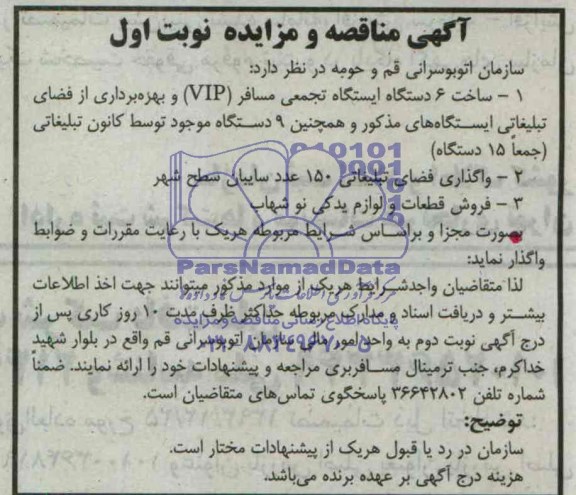 آگهی مناقصه و مزایده نوبت اول
سازمان اتوبوسرانی قم و حومه در نظر دارد:
۱ - ساخت ۶ دستگاه ایستگاه تجمعی مسافر (VIP) و بهره‌برداری از فضای
تبلیغاتی ایستگاه‌های مذکور و همچنین ۹ دستگاه موجود توسط کانون تبلیغاتی
(جمعاً ۱۵ دستگاه)
۲ - واگذاری فضای تبلیغاتی ۱۵۰ عدد سایبان سطح شهر
۳ - فروش قطعات و لوازم یدکی نو شهاب
بصورت مجزا و براساس شرایط مربوطه هریک با رعایت مقررات و ضوابط
واگذار نماید:
لذا متقاضیان واجدشرایط هریک از موارد مذکور میتوانند جهت اخذ اطلاعات
بیشتر و دریافت اسناد و مدارک مربوطه حداکثر ظرف مدت ۱۰ روز کاری پس از
درج آگهی نوبت دوم به واحد امور مالی سازمان اتوبوسرانی قم واقع در بلوار شهید
خداکرم، جنب ترمینال مسافربری مراجعه و پیشنهادات خود را ارائه نمایند. ضمناً
شماره تلفن ۳۶۶۴۲۸۰۲ پاسخگوی تماس‌های متقاضیان است.
توضیح:
سازمان در رد یا قبول هریک از پیشنهادات مختار است.
هزینه درج آگهی بر عهده برنده می‌باشد.
ParsNamadData
پایگاه اطلاع رسانی مناقصه و مزایده